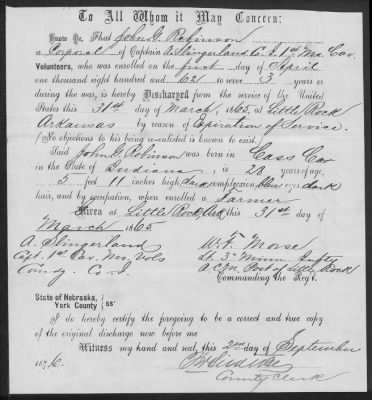 To All Whom it May Concern:
Know Ye, That John G. Robinson
a Corporal of Captain A. Slingerland Co. I. 1st Mo. Cav.
Volunteers, who was enrolled on the first day of April
one thousand eight hundred and 62 to serve 3 years or
during the war, is hereby Discharged from the service of the United
States this 31st day of March, 1865, at Little Rock
Arkansas by reason of Expiration of Service.
(No objections to his being re-enlisted is known to exist.)
Said John G. Robinson was born in Cass Co
in the State of Indiana, is 28 years of age,
5 feet 11 inches high, dark complexion, blue eyes dark
hair, and by occupation, when enrolled a Farmer
Given at Little Rock, Ark this 31st day of
March 1865.
A. Slingerland
Capt. 1st Cav. Mo. Vols
Comdg. Co.
W. F. Morse
Lt. 3" Minn. Infty
A.C.M. Post of Little Rock
Commanding the Regt.
State of Nebraska,
York County } ss'
I do hereby certify the foregoing to be a correct and true copy
of the original discharge now before me
Witness my hand and seal, this 2nd day of September
1876.
County Clerk